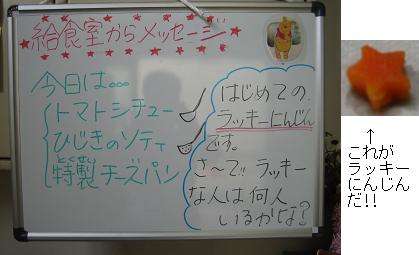 給食室からメッセージ
今日は…
トマトシチュー
ひじきのソティ
とくせい
特製チーズパン
はじめての
ラッキーにんじん
です。
さ～て!! ラッキー
な人は何人
いるかな?
↑
これが
ラッキー
にんじん
だ!!